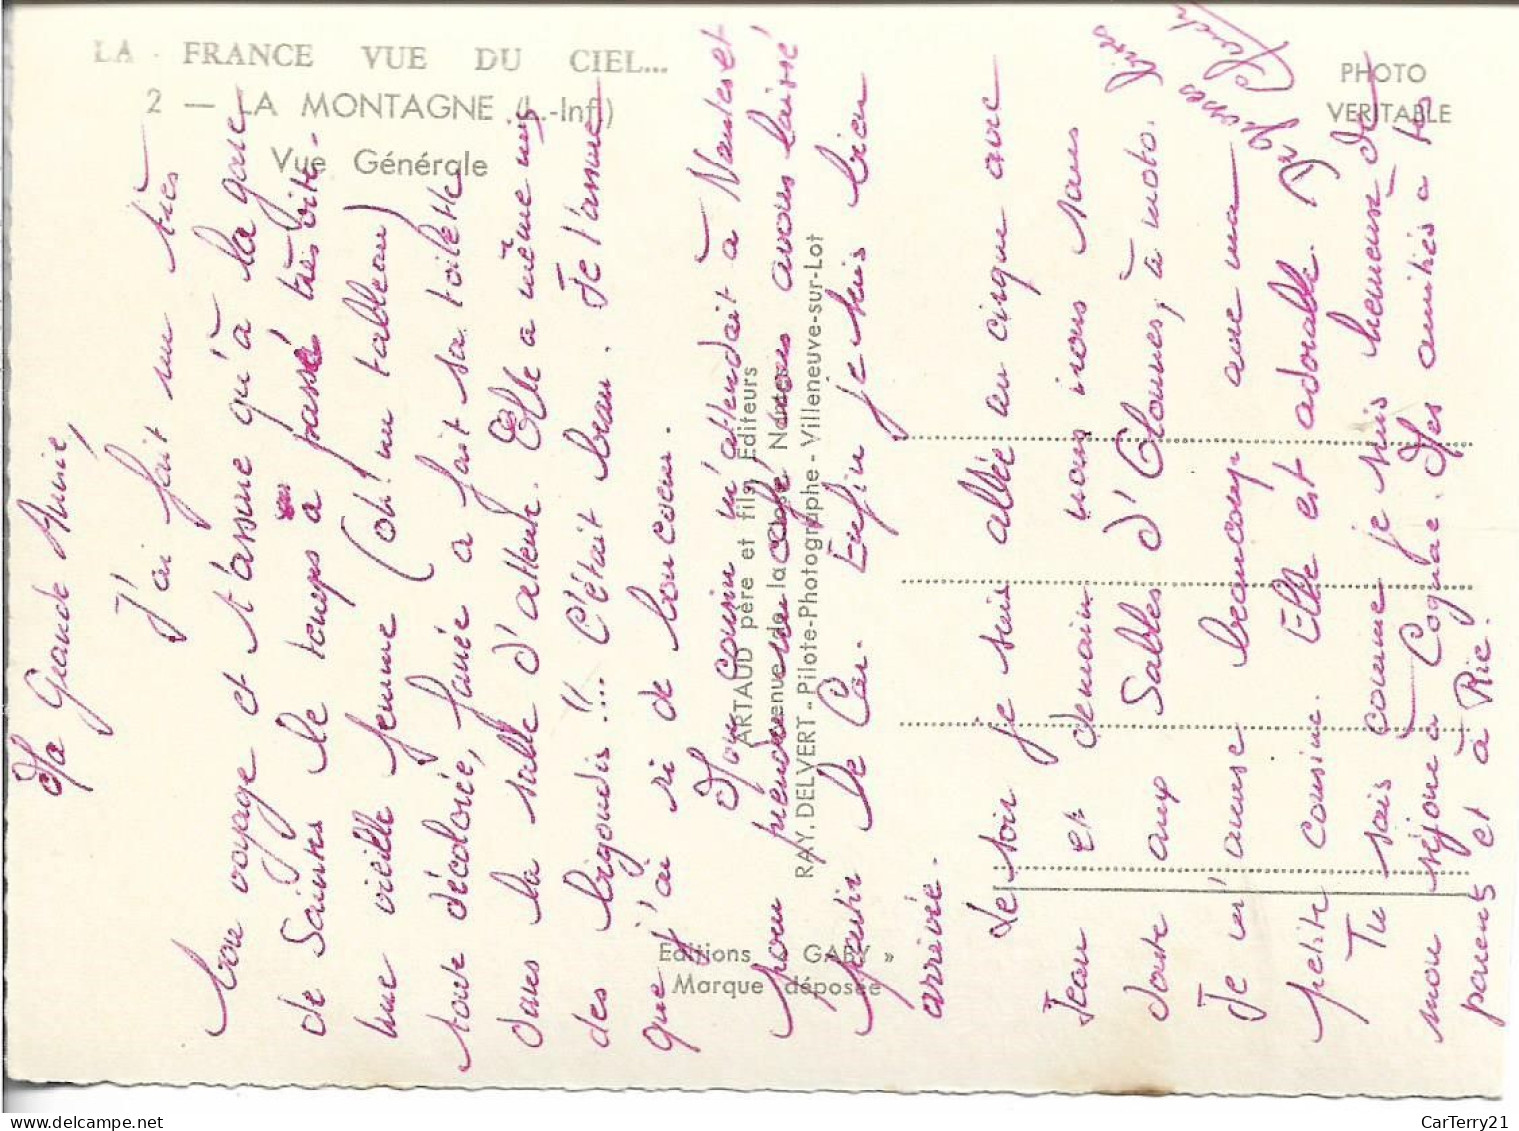 LA FRANCE VUE DU CIEL...
2 — LA MONTAGNE (L.-Inf.)
Vue Générale
PHOTO
VERITABLE
ARTAUD père et fils, Editeurs
Avenue de la Close, Nantes
RAY. DELVERT - Pilote-Photographe - Villeneuve-sur-Lot
Editions « GABY »
Marque déposée
Ma Grande Annie,
J'ai fait un très
bon voyage et t'assure qu'à la gare
de Saintes le temps a passé très vite.
Une vieille femme (oh! un tableau)
toute décolorée, fanée a fait sa toilette
dans la salle d'attente. Elle a même mis
des bigoudis!!... C'était beau. Je t'assure
que j'ai ri de bon coeur.
Mon cousin m'attendait à Nantes et
pour prendre un café, nous avons laissé
partir le Car. Enfin je suis bien
arrivée.
Le soir je suis allée au cinque avec
Jean et demain nous nous
doute aux Sables d'Olonnes, à moto.
Je m'amuse beaucoup avec ma
petite cousine. Elle est adorable.
Tu sais comme je suis heureuse de
mon séjour à Cognac. Mes amitiés à tes
parents et à Ric.
CarTerry21